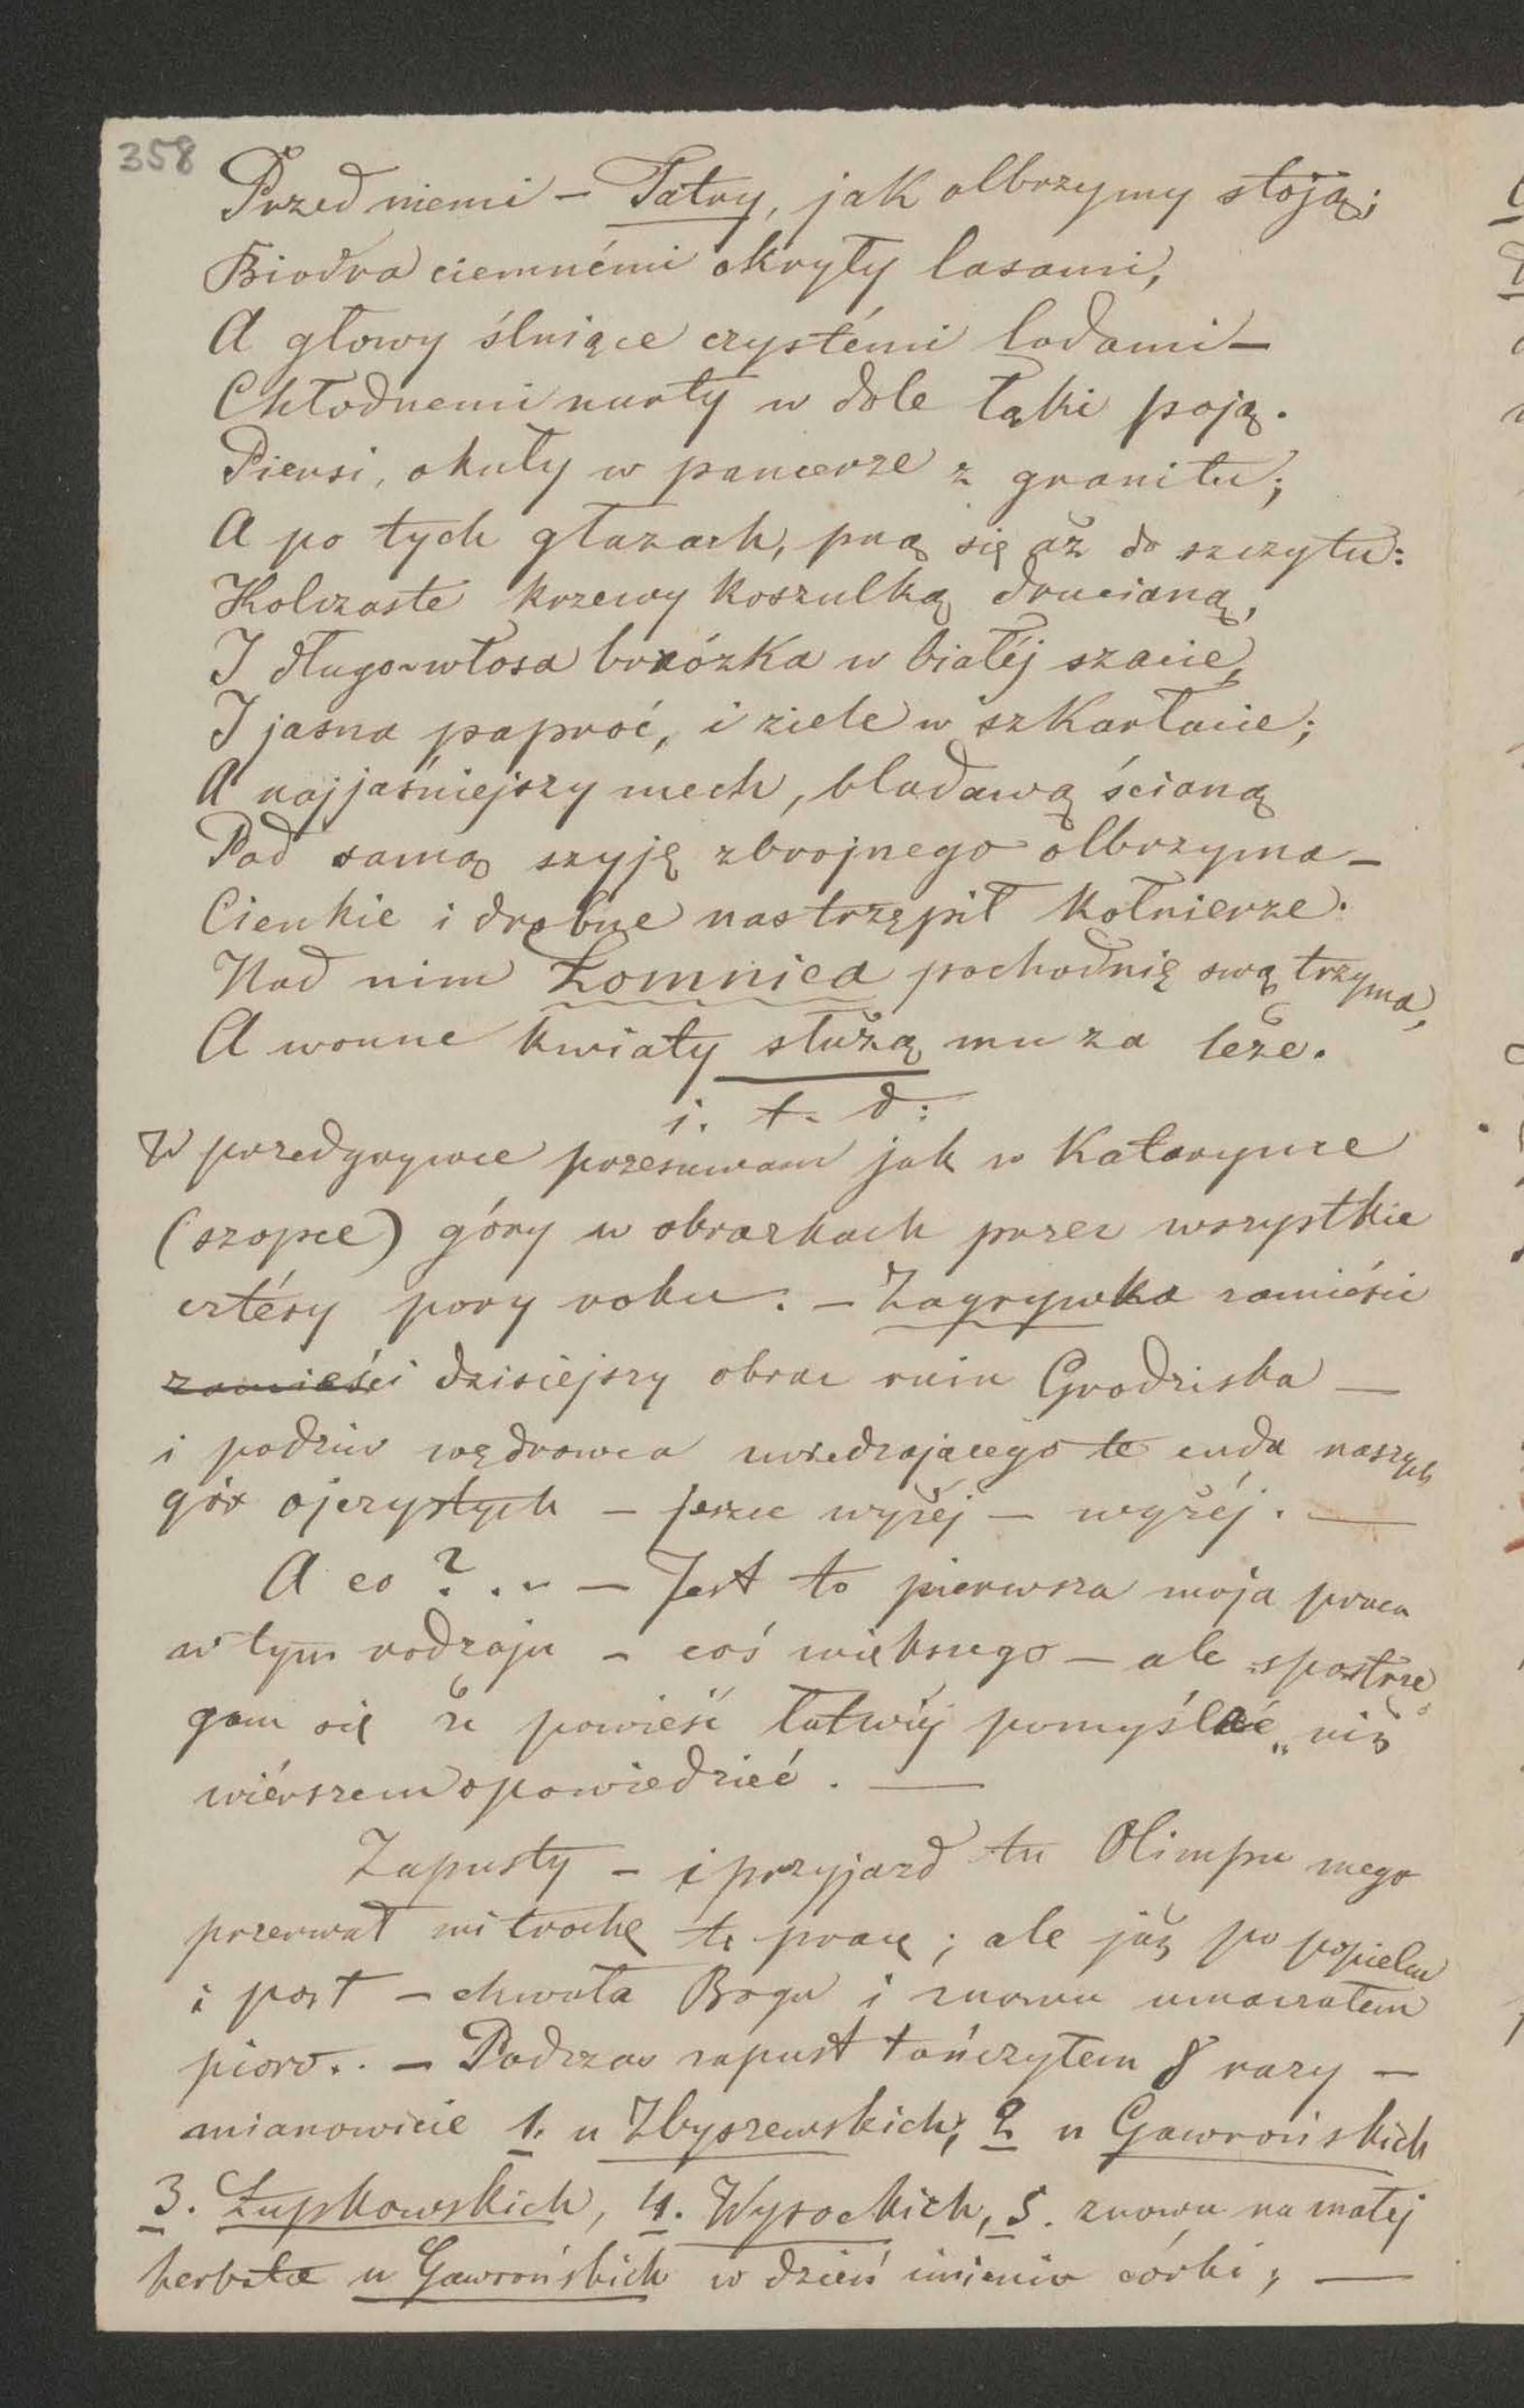 358
Przed niemi – Tatry, jak olbrzymy stoją;
Biodra ciemnémi okryły lasami,
A głowy ślniące czystémi lodami –
Chłodnemi nurty w dole łąki poją.
Piersi, okuły w pancerze z granitu;
A po tych głazach, pną się aż do szczytu:
Kolczaste krzewy koszulką drucianą,
I długo-włosa brzózka w białéj szacie,
I jasna paproć, i ziele w szkarłacie;
A najjaśniejszy mech, bladawą ścianą
Pod samą szyję zbrojnego olbrzyma –
Cienkie i drobne nastrzępił kołnierze.
Nad nim Łomnica pochodnię swą trzyma,
A wonne kwiaty służą mu za leże.
i. t. d:
W przedgrywce przesuwam jak w Katarynce
(szopce) góry w obrazkach przez wszystkie
cztéry pory roku. – Zagrywka zamieści
zamieści dzisiejszy obraz ruin Grodziska –
i podziw wędrowca zwiedzającego te cuda naszych
gór ojczystych – jeszcze wyżej – wyżéj. –
A co?.. – Jest to pierwsza moja praca
w tym rodzaju – coś większego – ale spostrze
gam się że powieść łatwiéj pomyśleć „niż
wiérszem opowiedzieć. –
Zapusty – i przyjazd tu Olimpu mego
przerwał mi trochę tę pracę; ale już po popielcu
i post – chwała Bogu i znowu umaczałem
pioro.. – Podczas zapust tańczyłem 8 razy –
mianowicie 1. u Zbyszewskich, 2. u Gawrońskich
3. Łupkowskich, 4. Wysockich, 5. znowu na małej
herbatce u Gawrońskich w dzień imienin córki; –